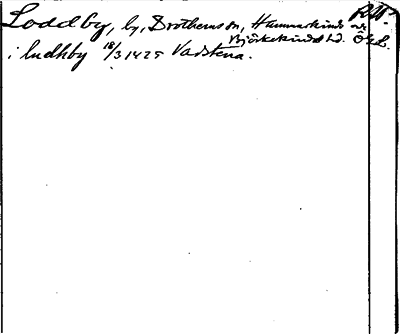 Loddby, by, Drothems sn, Hammarkinds RAP.
och Björkekinds hd. ÖgL.
i ludhby 18/3 1425 Vadstena.